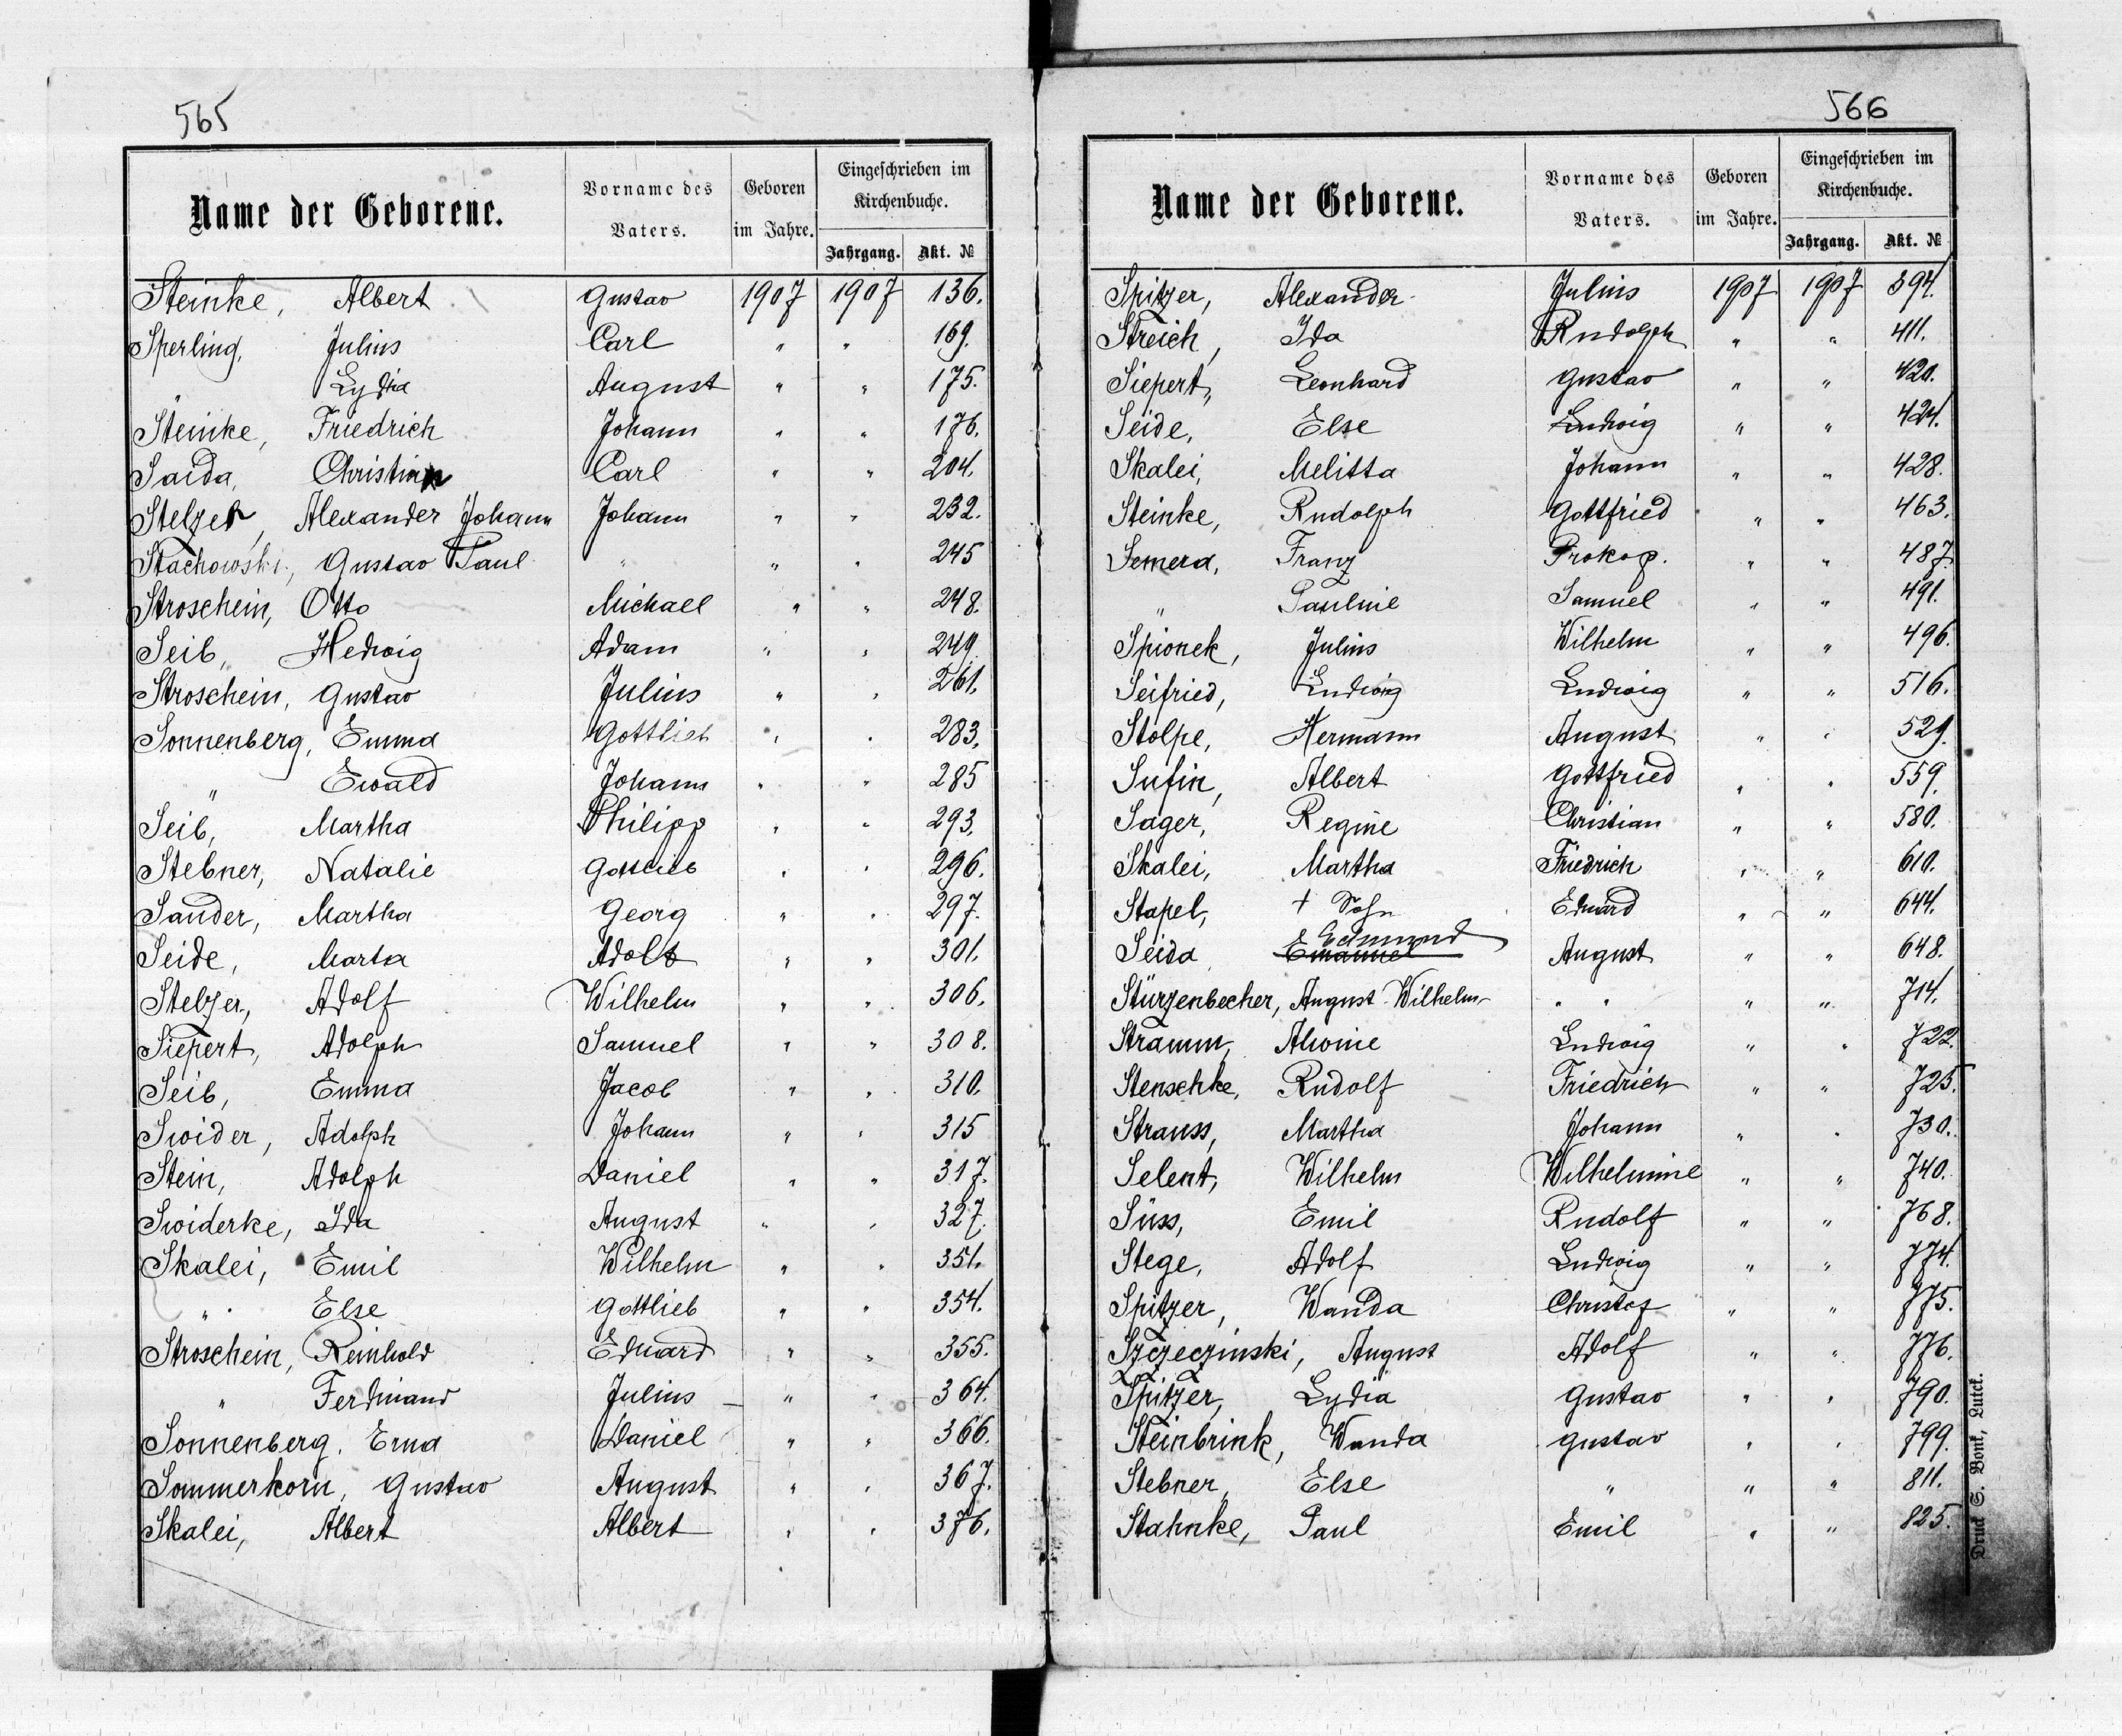 565
Name der Geborene. Vorname des Vaters. Geboren im Jahre. Eingeschrieben im Kirchenbuche.
Jahrgang. Akt. №
Steinke, Albert Gustav 1907 1907 136.
Sperling, Julius Carl " " 169.
" Lydia August " " 175.
Steinke, Friedrich Johann " " 176.
Saida, Christian Carl " " 204.
Stelzer, Alexander Johann Johann " " 232.
Stachowski, Gustav Paul " " " 245
Stroschein, Otto Michael " " 248.
Seib, Hedwig Adam " " 249.
Stroschein, Gustav Julius " " 261.
Sonnenberg, Emma Gottlieb " " 283.
" Ewald Johann " " 285
Seib, Martha Philipp " " 293.
Stebner, Natalie Gottlieb " " 296.
Sander, Martha Georg " " 297.
Seide, Marta Adolf " " 301.
Stelzer, Adolf Wilhelm " " 306.
Siepert, Adolph Samuel " " 308.
Seib, Emma Jacob " " 310.
Swider, Adolph Johann " " 315
Stein, Adolph Daniel " " 317.
Swiderke, Ida August " " 327.
Skalei, Emil Wilhelm " " 351.
" Else Gottlieb " " 354.
Stroschein, Reinhold Eduard " " 355.
" Ferdinand Julius " " 364.
Sonnenberg, Erna Daniel " " 366.
Sommerkorn, Gustav August " " 367.
Skalei, Albert Albert " " 376.
566
Name der Geborene. Vorname des Vaters. Geboren im Jahre. Eingeschrieben im Kirchenbuche.
Jahrgang. Akt. №
Spitzer, Alexander Julius 1907 1907 394.
Streich, Ida Rudolph " " 411.
Siepert, Leonhard Gustav " " 420.
Seide, Else Ludwig " " 424.
Skalei, Melitta Johann " " 428.
Steinke, Rudolph Gottfried " " 463.
Semera, Franz Prokop. " " 487.
" Pauline Samuel " " 491.
Spionek, Julius Wilhelm " " 496.
Seifried, Ludwig Ludwig " " 516.
Stolpe, Hermann August " " 529.
Sufin, Albert Gottfried " " 559.
Sager, Regine Christian " " 580.
Skalei, Martha Friedrich " " 610.
Stapel, + Sohn Eduard " " 644.
Edmund
Seida Emanuel August " " 648.
Stürzenbecher, August Wilhelm " " " " 714.
Stramm, Alwine Ludwig " " 722.
Stenschke, Rudolf Friedrich " " 725.
Strauss, Martha Johann " " 730.
Selent, Wilhelm Wilhelmine " " 740.
Süss, Emil Rudolf " " 768.
Stege, Adolf Ludwig " " 774.
Spitzer, Wanda Christof " " 775.
Szczeczinski, August Adolf " " 776.
Spitzer, Lydia Gustav " " 790.
Steinbrink, Wanda Gustav " " 799.
Stebner, Else " " " 811.
Stahnke, Paul Emil " " 825.
Druck S. Bonk, Lutck.